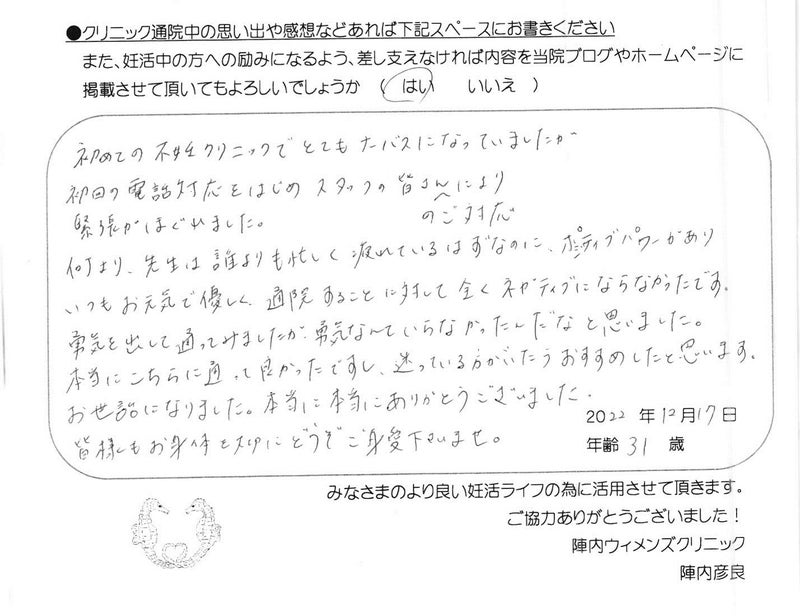 ●クリニック通院中の思い出や感想などあれば下記スペースにお書きください
また、妊活中の方への励みになるよう、差し支えなければ内容を当院ブログやホームページに
掲載させて頂いてもよろしいでしょうか ( はい いいえ )
初めての不妊クリニックでとてもナーバスになっていましたが
初回の電話対応をはじめスタッフの皆さんのご対応により
緊張がほぐれました。
何より、先生は誰よりも忙しく疲れているはずなのに、ポジティブパワーがあり
いつもお元気で優しく、通院することに対して全くネガティブにならなかったです。
勇気を出して通ってみましたが、勇気なんていらなかったんだなと思いました。
本当にこちらに通って良かったですし、迷っている方がいたらおすすめしたと思います。
お世話になりました。本当に本当にありがとうございました。
皆様もお身体を大切にどうぞご自愛下さいませ。
2022 年 12月 17日
年齢 31 歳
みなさまのより良い妊活ライフの為に活用させて頂きます。
ご協力ありがとうございました！
陣内ウィメンズクリニック
陣内彦良